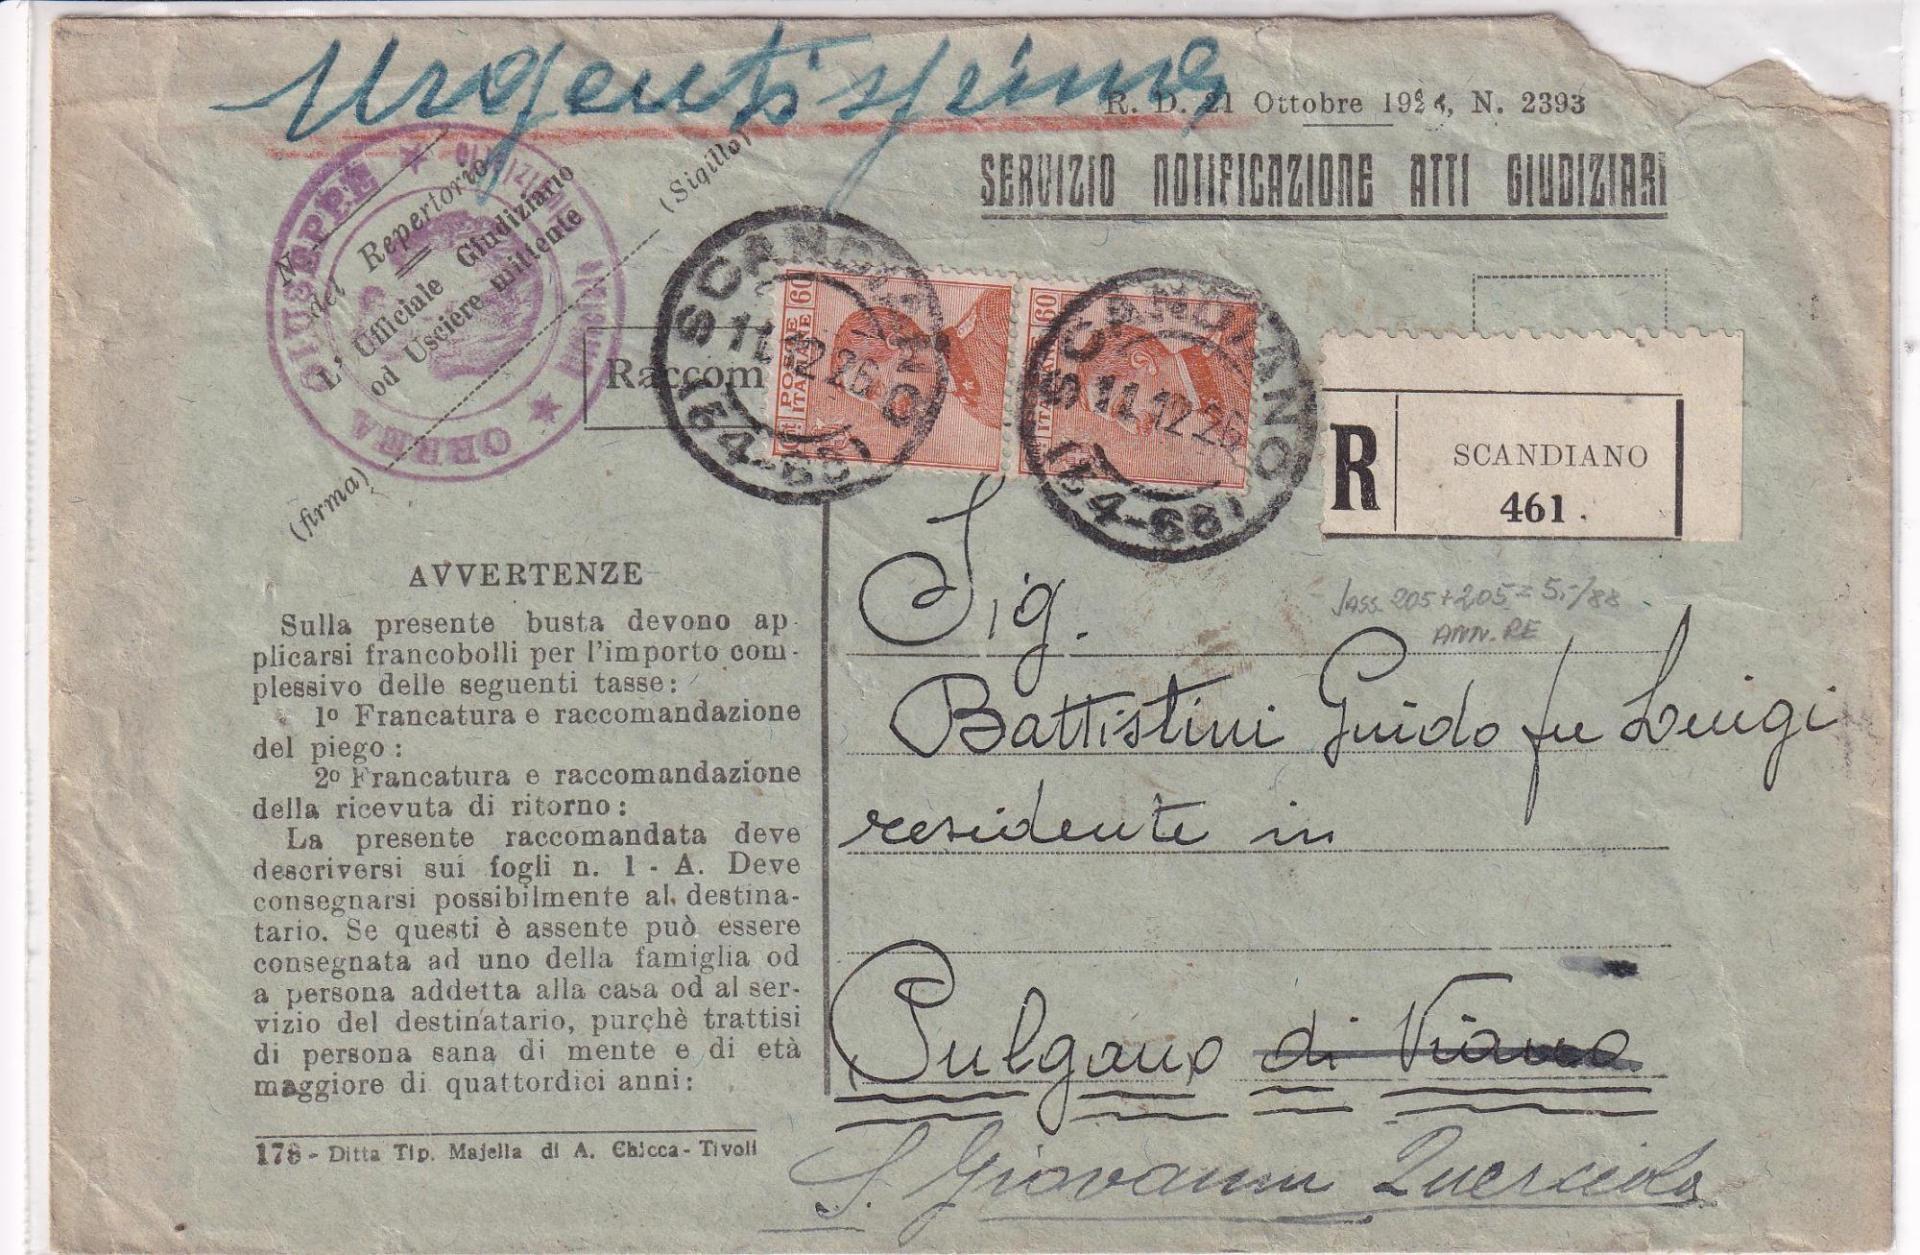 Urgentissimo
R. D. 21 Ottobre 1924, N. 2393
SERVIZIO NOTIFICAZIONE ATTI GIUDIZIARI
N.
del Repertorio
L' Ufficiale Giudiziario
od Usciere mittente
(Sigillo)
(firma)
GIUSEPPE
ORREA
Raccom
SCANDIANO
11.12.26
POSTE ITALIANE
60
SCANDIANO
11.12.26
60
R
SCANDIANO
461
Tass. 205+205=5,-/88
ANN. RE
AVVERTENZE
Sulla presente busta devono ap-
plicarsi francobolli per l'importo com-
plessivo delle seguenti tasse:
1º Francatura e raccomandazione
del piego:
2º Francatura e raccomandazione
della ricevuta di ritorno:
La presente raccomandata deve
descriversi sui fogli n. 1 - A. Deve
consegnarsi possibilmente al destina-
tario. Se questi è assente può essere
consegnata ad uno della famiglia od
a persona addetta alla casa od al ser-
vizio del destinatario, purchè trattisi
di persona sana di mente e di età
maggiore di quattordici anni:
178 - Ditta Tip. Majella di A. Chicca - Tivoli
Sig.
Battistini Guido fu Luigi
residente in
Pulgano di Viano
S. Giovanni Querciola